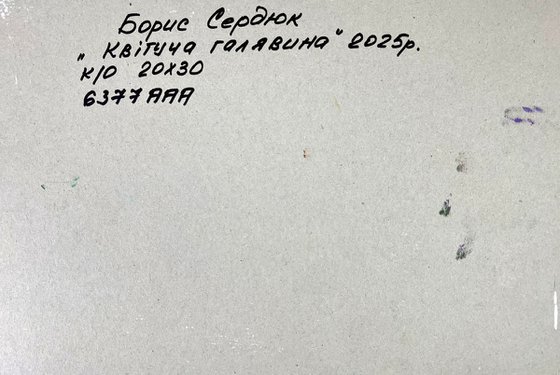 Борис Сердюк
„Квітуча галявина" 2025р.
к/о 20х30
6377ААА